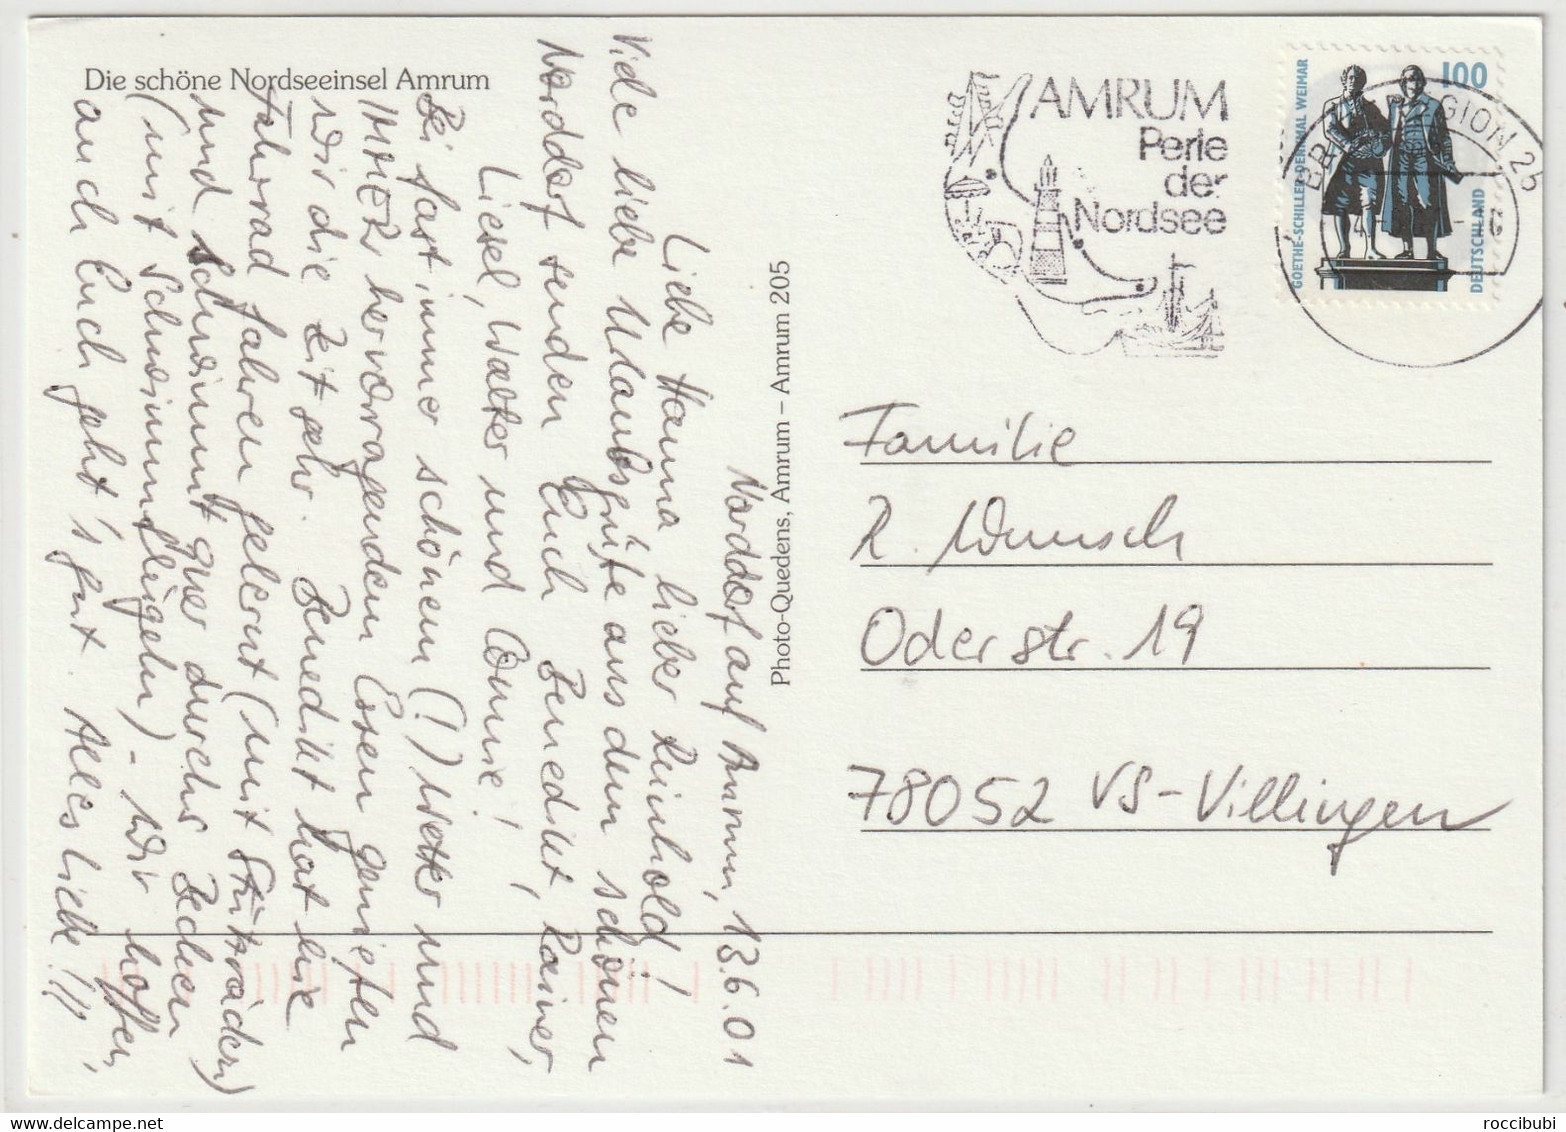 Die schöne Nordseeinsel Amrum
Norddorf auf Amrum, 13.6.01
Liebe Hanna lieber Reinhold!
Viele liebe Urlaubsgrüße aus dem schönen
Norddorf senden Euch Benedikt, Rainer,
Liesel, Walter und Connie!
Bei fast immer schönem (!) Wetter und
IMMER hervorragendem Essen genießen
wir die Zeit sehr. Benedikt hat hie
Fahrrad fahren gelernt (mit Stützrädern)
und schwimmt quer durchs Becken
(mit Schwimmflügeln) - Wir hoffen,
auch Euch geht's gut. Alles Liebe!!!
Photo-Quedens, Amrum – Amrum 205
AMRUM
Perle
der
Nordsee
100
GOETHE-SCHILLER-DENKMAL WEIMAR
DEUTSCHLAND
REGION 25
Familie
R. Wunsch
Oderstr. 19
78052 VS-Villingen
roccibubi